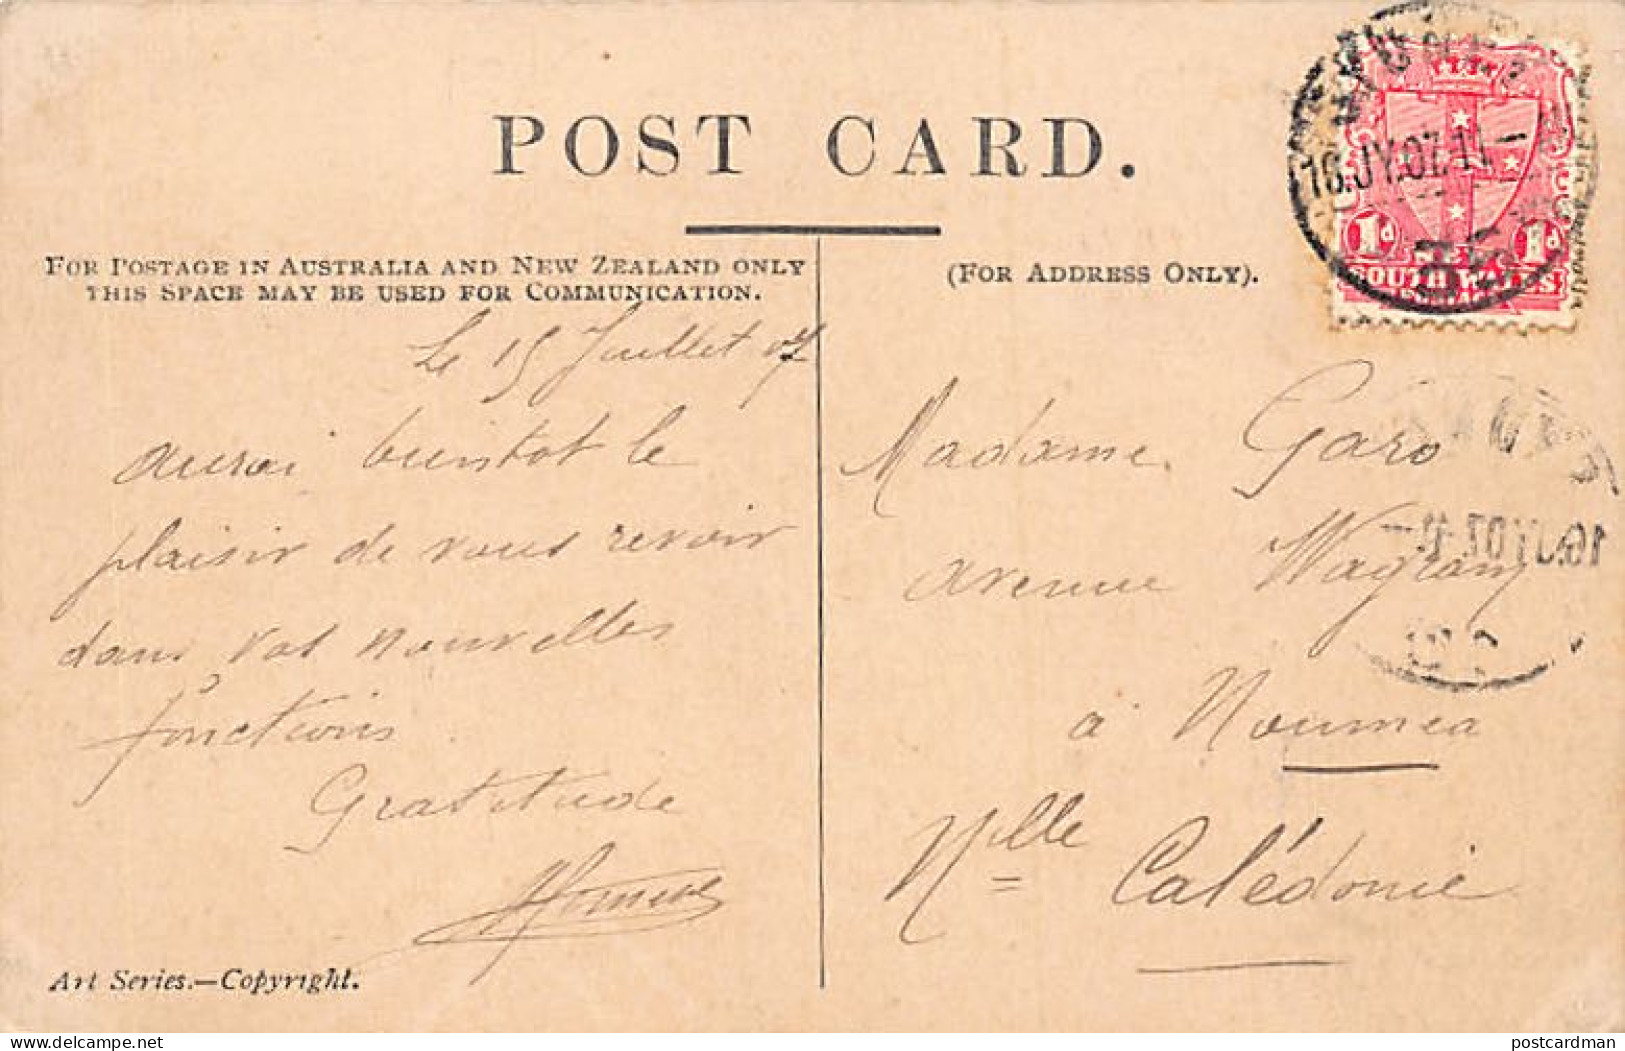 POST CARD.
FOR POSTAGE IN AUSTRALIA AND NEW ZEALAND ONLY
THIS SPACE MAY BE USED FOR COMMUNICATION.
(FOR ADDRESS ONLY).
Le 15 Juillet 07
aurai bientot le
plaisir de vous revoir
dans vos nouvelles
fonctions.
Gratitude
Art Series.—Copyright.
Madame Garo
avenue Wagram
à Noumea
Nlle Calédonie
16.JY.07.11-
1d 1d
SOUTH WALES
16.JY.07.11-
postcardman